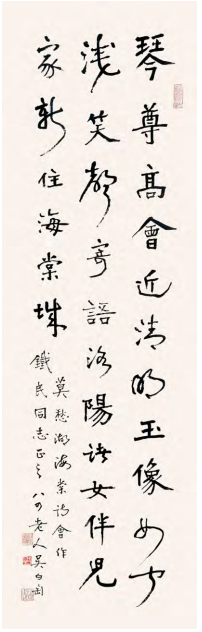 琴尊高會近清明玉像如聞
淺笑聲寄語洛陽諸女伴兒
家新住海棠城
莫愁湖海棠詩會作
鐵民同志正之 八四老人吳白匋